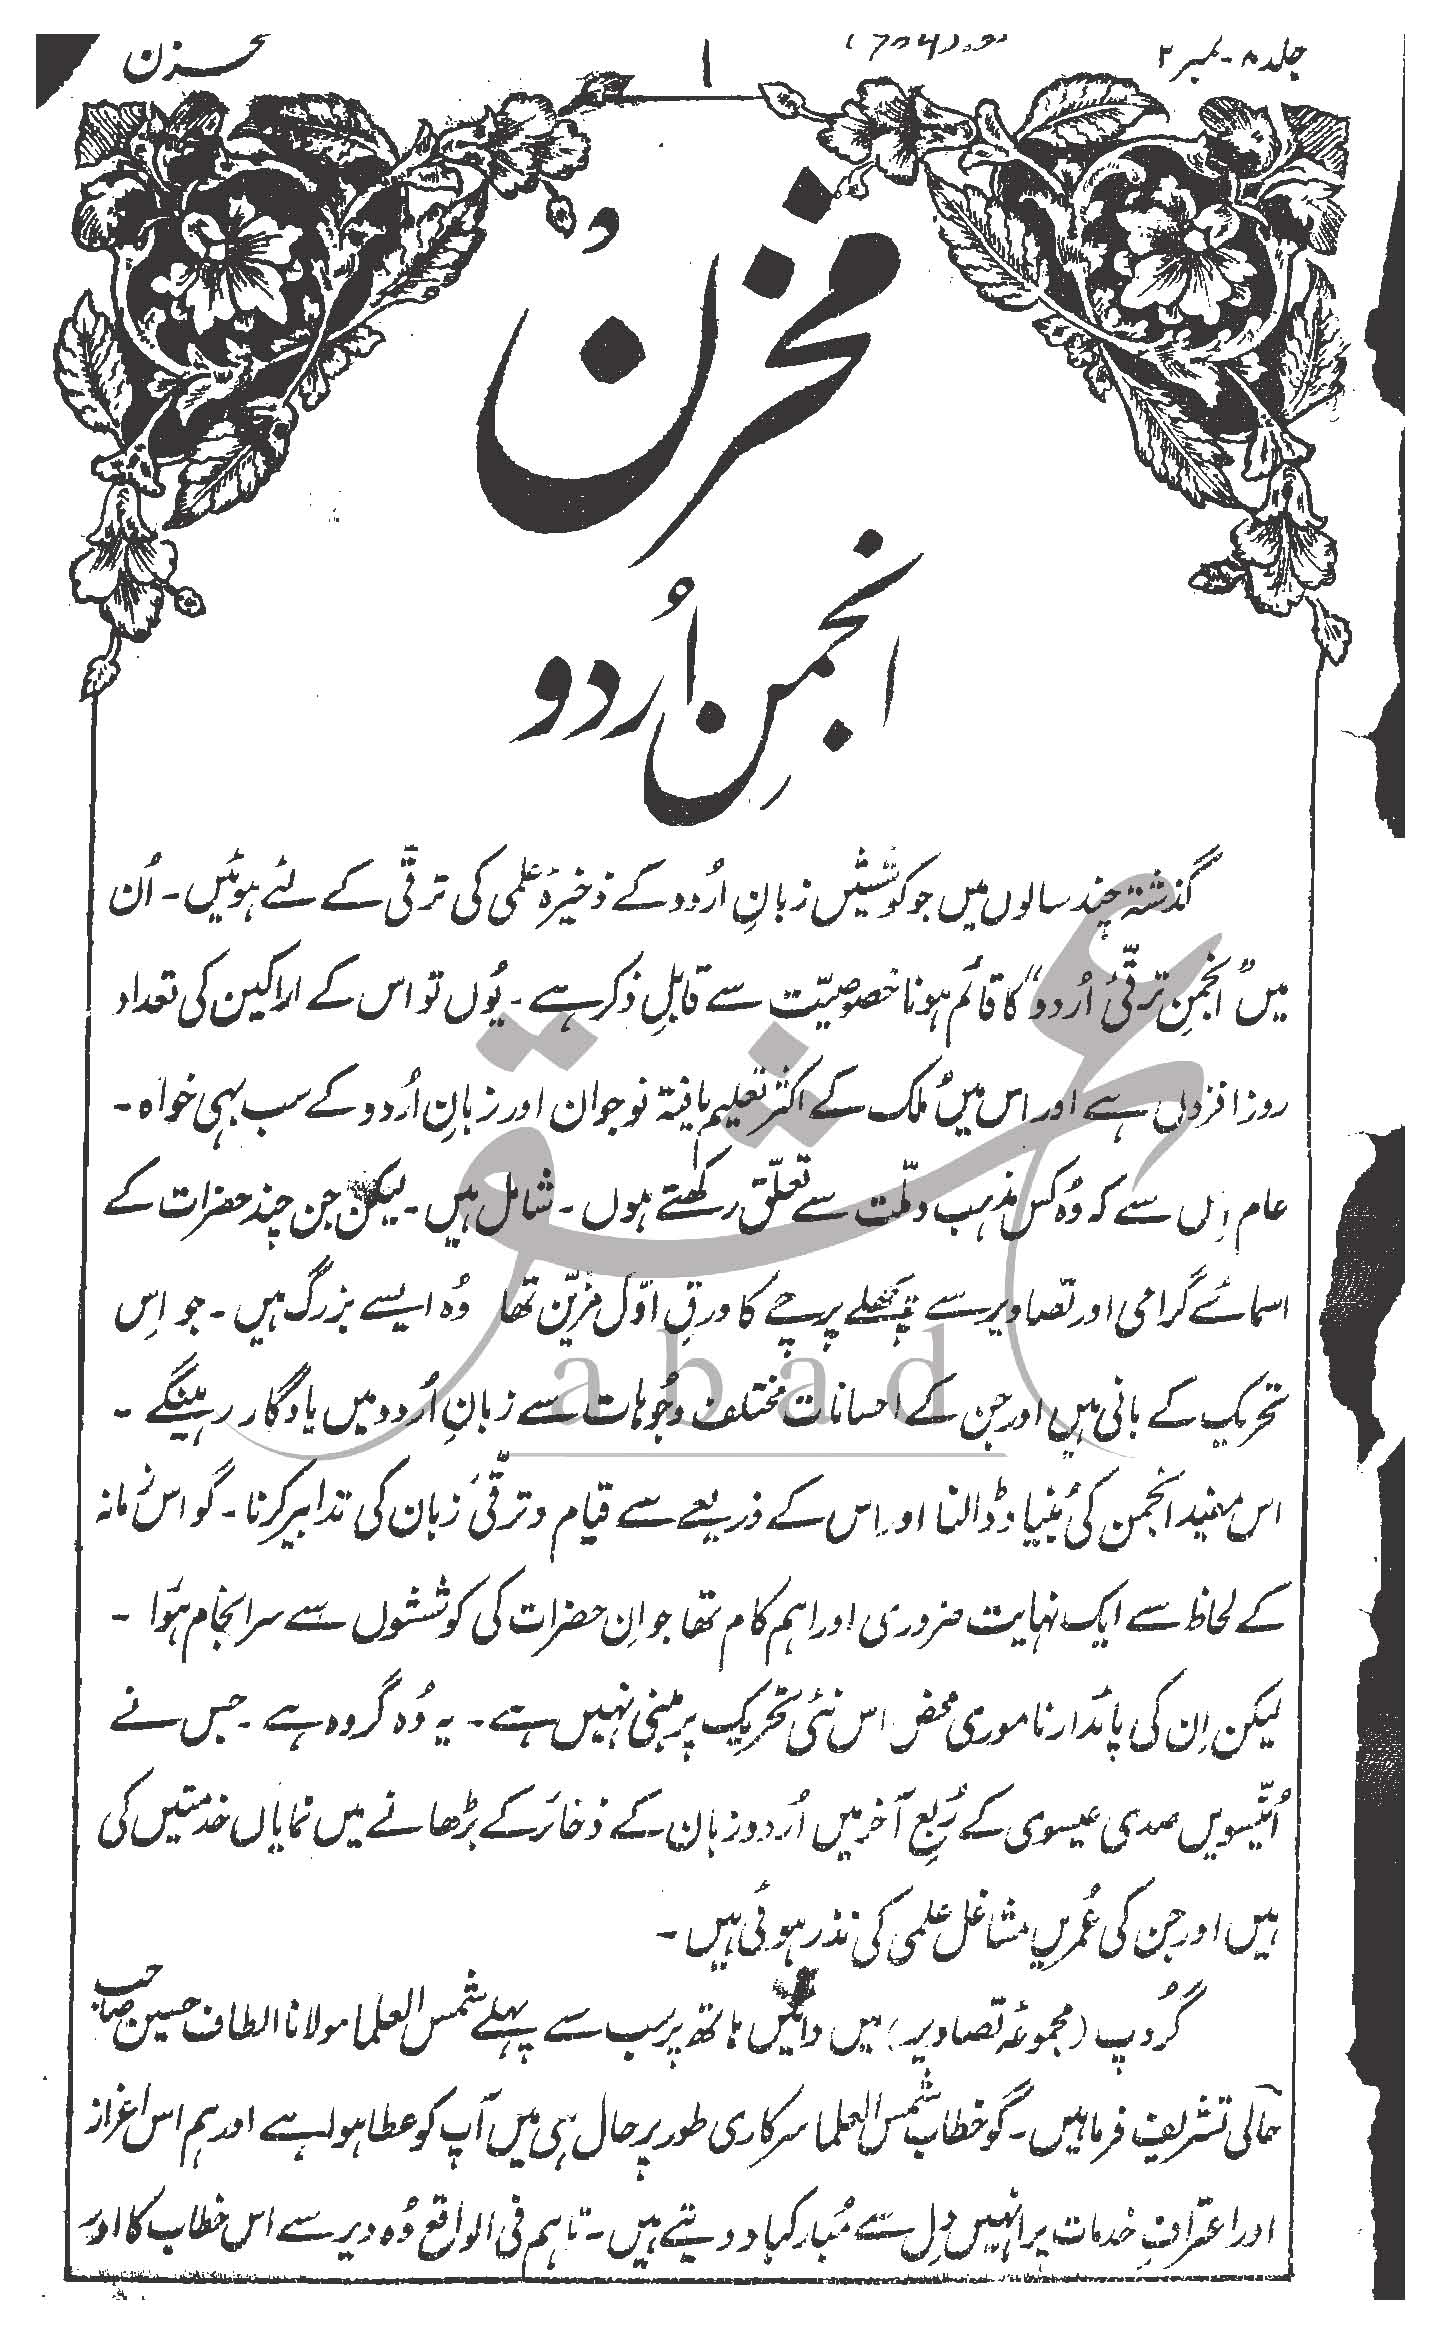 جلد ۸ - نمبر ۲
۱
مخزن
مخزن
انجمنِ اُردو
گذشتہ چند سالوں میں جو کوششیں زبانِ اُردو کے ذخیرۂ علمی کی ترقّی کے لئے ہوئیں - اُن
میں "انجمنِ ترقّیٔ اُردو" کا قائم ہونا خصوصیّت سے قابلِ ذکر ہے - یُوں تو اس کے اراکین کی تعداد
روز افزوں ہے اور اس میں مُلک کے اکثر تعلیم یافتہ نوجوان اور زبانِ اُردو کے سب بہی خواہ -
عام اِس سے کہ وُہ کس مذہب و ملّت سے تعلّق رکھتے ہوں - شامل ہیں - لیکن جن چند حضرات کے
اسمائے گرامی اور تصاویر سے پچھلے پرچے کا ورقِ اوّل مزیّن تھا وُہ ایسے بزرگ ہیں - جو اِس
تحریک کے بانی ہیں اور جن کے احسانات مختلف وجُوہات سے زبانِ اُردو میں یادگار رہینگے -
اس مفید انجمن کی بُنیاد ڈالنا اور اس کے ذریعے سے قیام و ترقّیٔ زبان کی تدابیر کرنا - گو اس زمانہ
کے لحاظ سے ایک نہایت ضروری اور اہم کام تھا جو اِن حضرات کی کوششوں سے سرانجام ہوا -
لیکن اِن کی پائدار ناموری محض اس نئی تحریک پر مبنی نہیں ہے - یہ وُہ گروہ ہے - جس نے
اُنّیسویں صدی عیسوی کے رُبع آخر میں اُردو زبان کے ذخائر کے بڑھانے میں نمایاں خدمتیں کی
ہیں اور جن کی عُمریں مشاغل علمی کی نذر ہوئی ہیں -
گروُپ (مجموعۂ تصاویر) میں دائیں ہاتھ پر سب سے پہلے شمس العلما مولانا الطاف حسین صاحب
حالی تشریف فرما ہیں - گو خطاب شمس العلما سرکاری طور پر حال ہی میں آپ کو عطا ہوا ہے اور ہم اس اعزاز
اور اعترافِ خدمات پر انہیں دِل سے مُبارکباد دیتے ہیں - تاہم فی الواقع وُہ دیر سے اس خطاب کا اور
abad